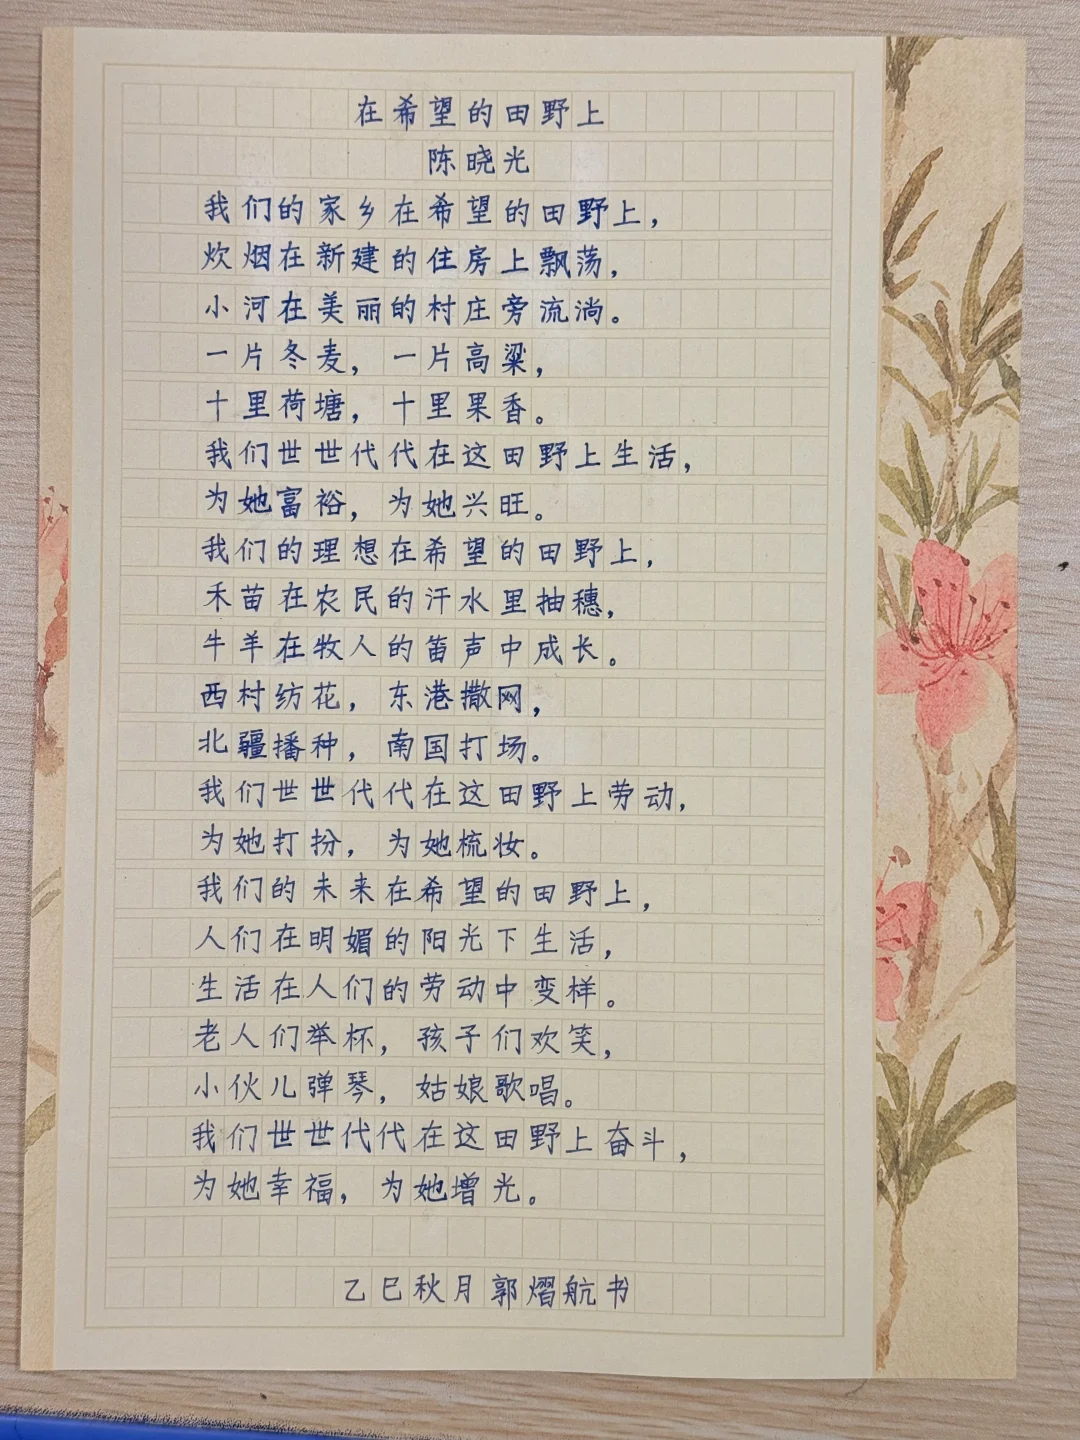 在希望的田野上
陈晓光
我们的家乡在希望的田野上，
炊烟在新建的住房上飘荡，
小河在美丽的村庄旁流淌。
一片冬麦，一片高粱，
十里荷塘，十里果香。
我们世世代代在这田野上生活，
为她富裕，为她兴旺。
我们的理想在希望的田野上，
禾苗在农民的汗水里抽穗，
牛羊在牧人的笛声中成长。
西村纺花，东港撒网，
北疆播种，南国打场。
我们世世代代在这田野上劳动，
为她打扮，为她梳妆。
我们的未来在希望的田野上，
人们在明媚的阳光下生活，
生活在人们的劳动中变样。
老人们举杯，孩子们欢笑，
小伙儿弹琴，姑娘歌唱。
我们世世代代在这田野上奋斗，
为她幸福，为她增光。
乙巳秋月郭熠航书